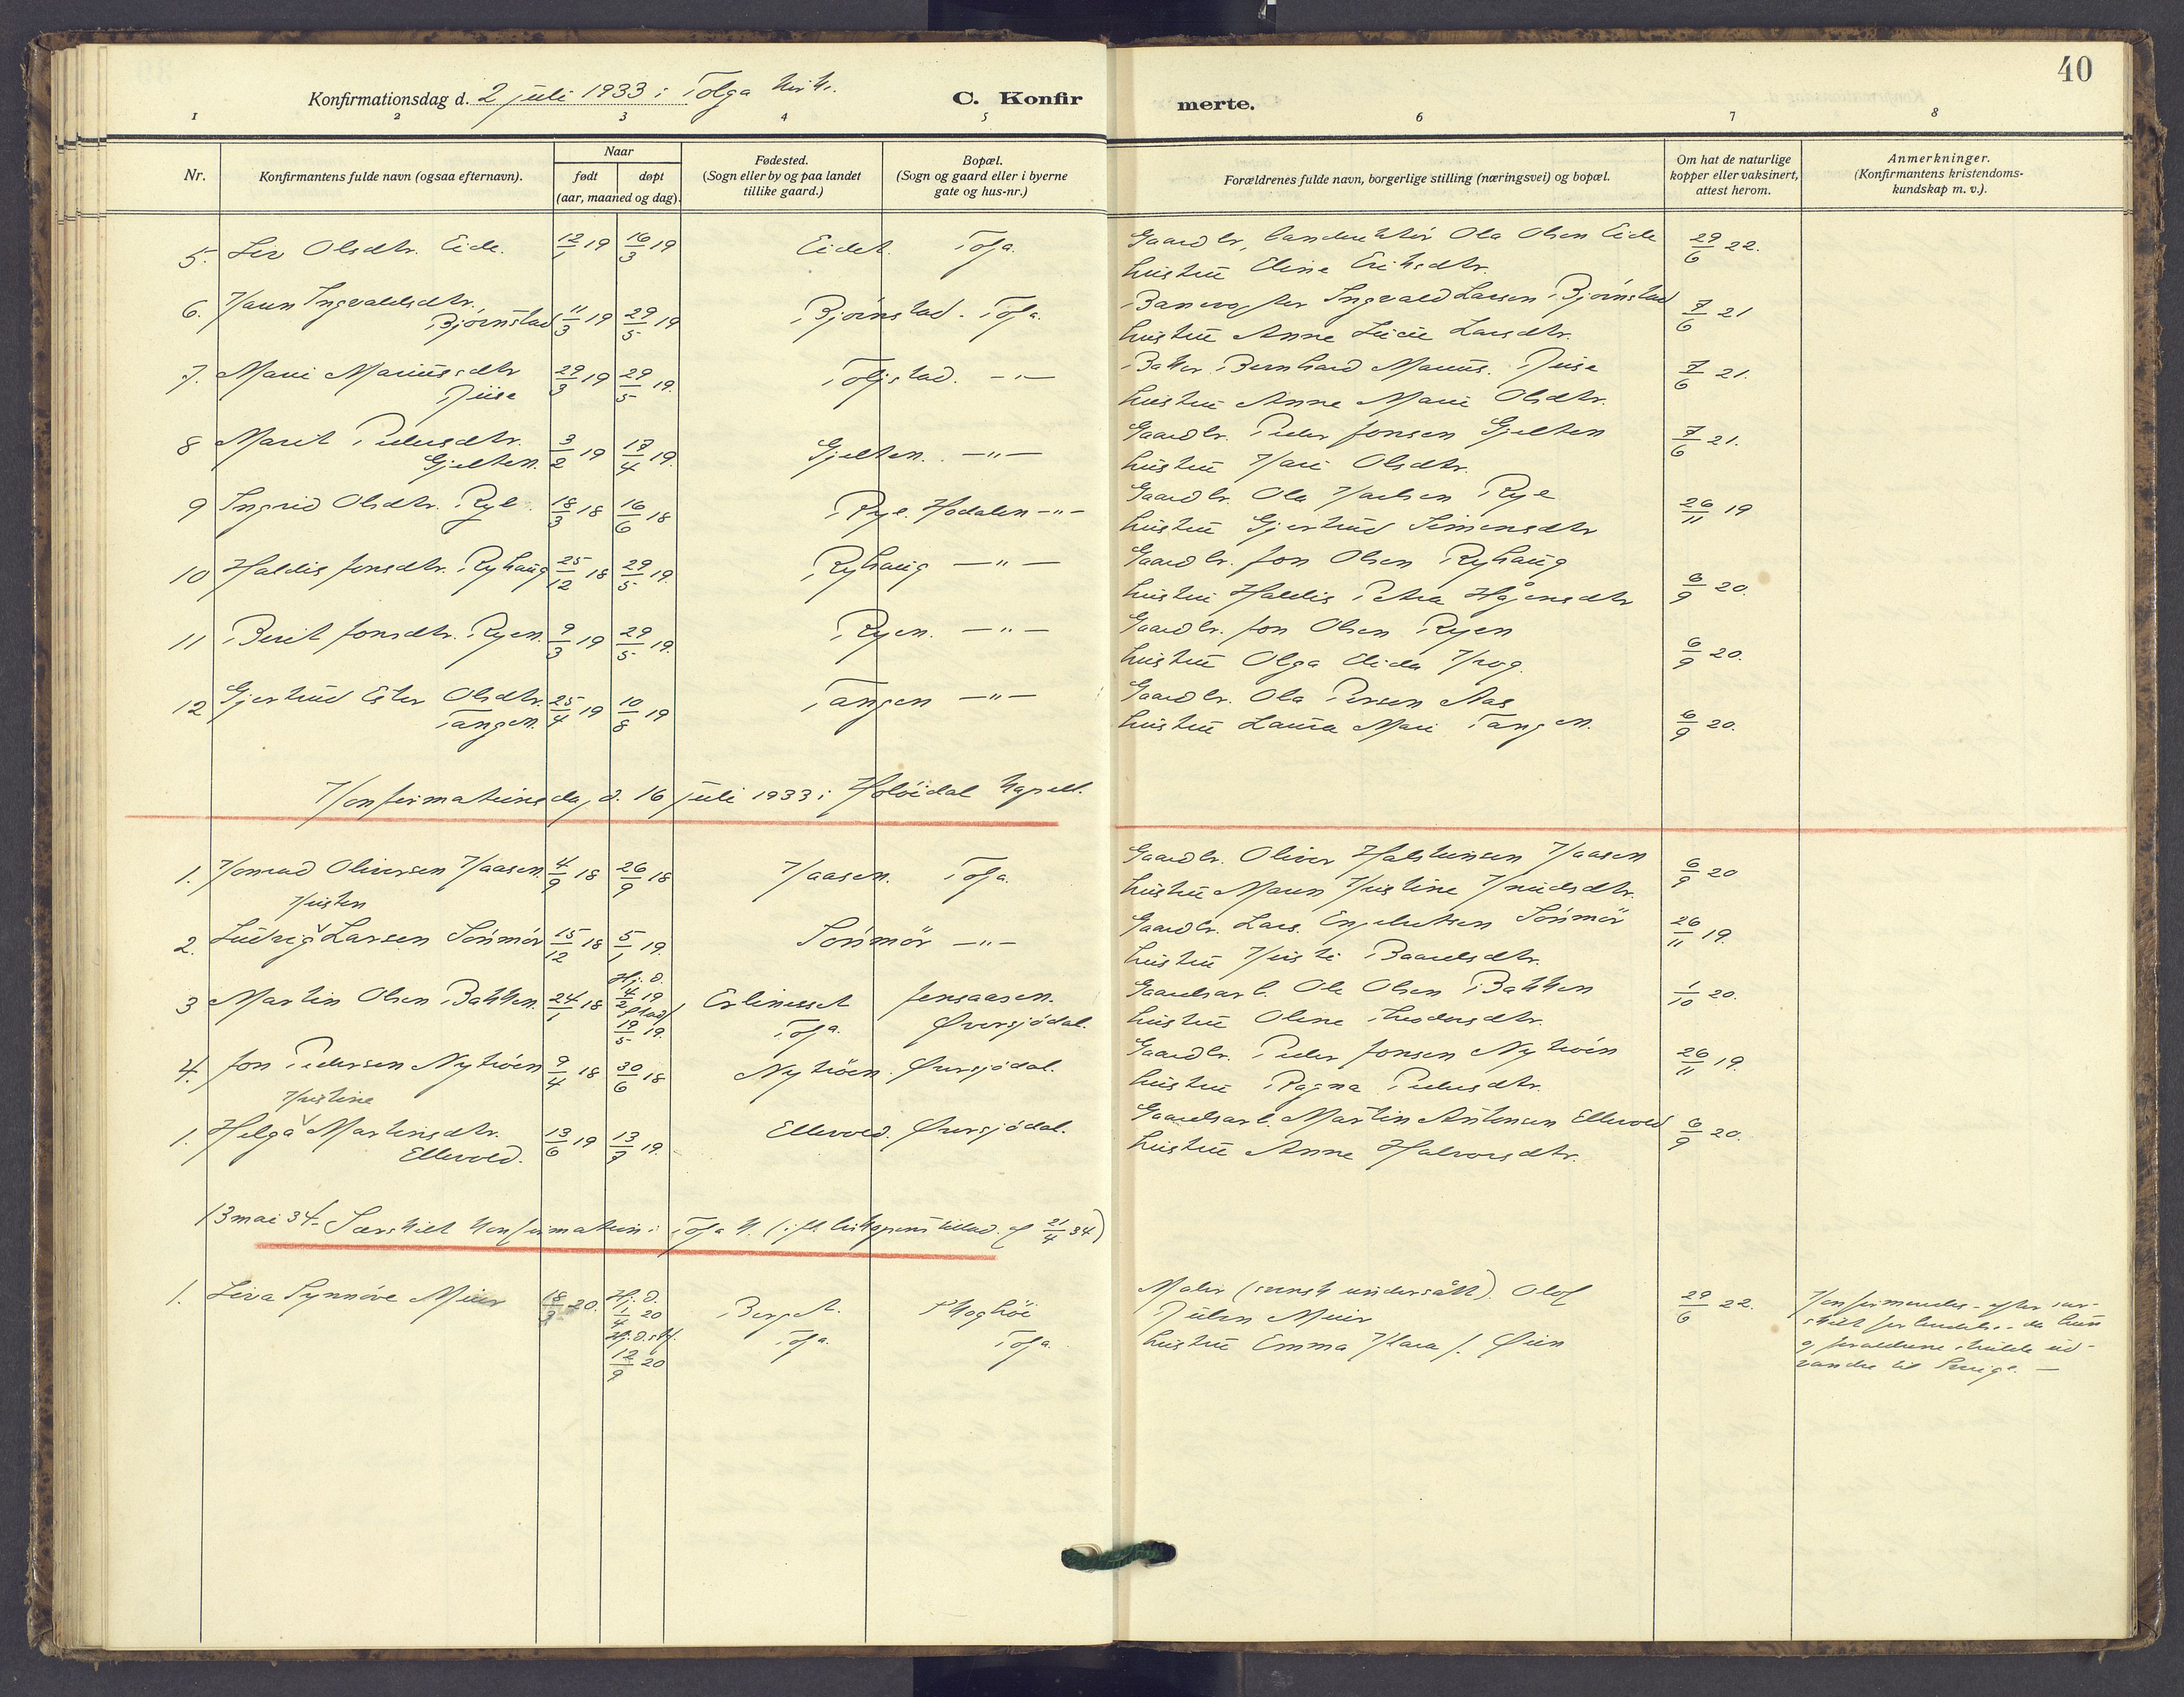 40
Konfirmationsdag d. 2 juli 1933 i Tolga kirk.
C. Konfir merte.
1 2 3 4 5 6 7 8
Nr.
Konfirmantens fulde navn (ogsaa efternavn).
Naar
født døpt
(aar, maaned og dag).
Fødested.
(Sogn eller by og paa landet
tillike gaard.)
Bopæl.
(Sogn og gaard eller i byerne
gate og hus-nr.)
Forældrenes fulde navn, borgerlige stilling (næringsvei) og bopæl.
Om hat de naturlige
kopper eller vaksinert,
attest herom.
Anmerkninger.
(Konfirmantens kristendoms-
kundskap m. v.).
5. Liv Olsdtr. Eide. 12/1 19 16/3 19 Eidet. Tolga. Gaardbr, Ola Olsen Eide 29/6 22.
hustru Eline Eriksdtr.
6. Karen Ingvaldsdtr.
Bjørnstad 11/3 19 29/5 19 Bjørnstad. Tolga. Banevogter Ingvald Larsen Bjørnstad 7/6 21
hustru Anne Lucie Larsdtr.
7. Mari Mariusdtr
Riise 29/3 19 29/5 19. Toljstad. -"- Baker Bernhard Marius Riise 7/6 21.
hustru Anne Marie Olsdtr.
8 Marit Pedersdtr.
Gjelten. 3/2 19 17/4 19. Gjelten. -"- Gaardbr. Peder Jonsen Gjelten 7/6 21.
hustru Kari Olsdtr.
9 Ingrid Olsdtr. Rye. 18/3 18 16/6 18 Rye. Hodalen -"- Gaardbr. Ola Karlsen Rye 26/11 19
hustru Gjertrud Simensdtr
10 Haldis Jonsdtr. Ryhaug 25/12 18 29/5 19. Ryhaug -"- Gaardbr. Jon Olsen Ryhaug 6/9 20.
hustru Haldis Petra Hågensdtr
11 Berit Jonsdtr. Ryen. 9/3 19 29/5 19. Ryen. -"- Gaardbr. Jon Olsen Ryen 6/9 20.
hustru Olga Elida Krog.
12 Gjertrud Ester Olsdtr.
Tangen. 25/4 19 10/8 19 Tangen -"- Gaardbr. Ola Persen Aas 6/9 20.
hustru Laura Mari Tangen.
Konfirmationsdag d. 16 juli 1933 i Holøidal kapell.
1. Konrad Oliversen Kaasen. 4/9 18 26/9 18 Kaasen. Tolga. Gaardbr. Oliver Halsteinsen Kaasen 6/9 20
hustru Maren Kristine Knudsdtr.
Kristen
2. Ludvig Larsen Sørmør 15/12 18 5/1 19. Sørmør -"- Gaardbr. Lars Engebretsen Sørmør 26/11 19.
hustru Kristi Baardsdtr.
3 Martin Olsen Bakken. 24/1 18 Hj. d. 4/2 19 stadf. 19/5 19. Erlienesset Tolga. Jensaasen. Øversjødal. Gaardsarb. Ole Olsen Bakken 1/10 20.
hustru Oline Theodorsdtr.
4. Jon Pedersen Nytrøen 9/4 18 30/6 18 Nytrøen. Øversjødal. Gaardbr. Peder Jonsen Nytrøen 26/11 19.
hustru Ragna Pedersdtr.
Kristine
1. Helga Martinsdtr.
Ellevold. 13/6 19 13/9 19. Ellevold. Øversjødal. Gaardsarb. Martin Antonsen Ellevold 6/9 20.
hustru Anne Halvorsdtr.
13 mai 34. Særskilt konfirmation i Tolga k. (ifl. biskopens tillad. af 21/4 34)
1. Liva Synnøve Meier 18/3 20. Hj. d. 1/4 20 Hj. d. stf. 12/9 20 Berget. Tolga. Skoghøi Tolga. Maler (svensk undersått). Olof
Meier 29/6 22.
hustru Emma Klara f. Øien
Konfirmeredes efter sær-
skilt forberedelse, da hun
og foraldrene skulde ud-
vandre til Sverige. -